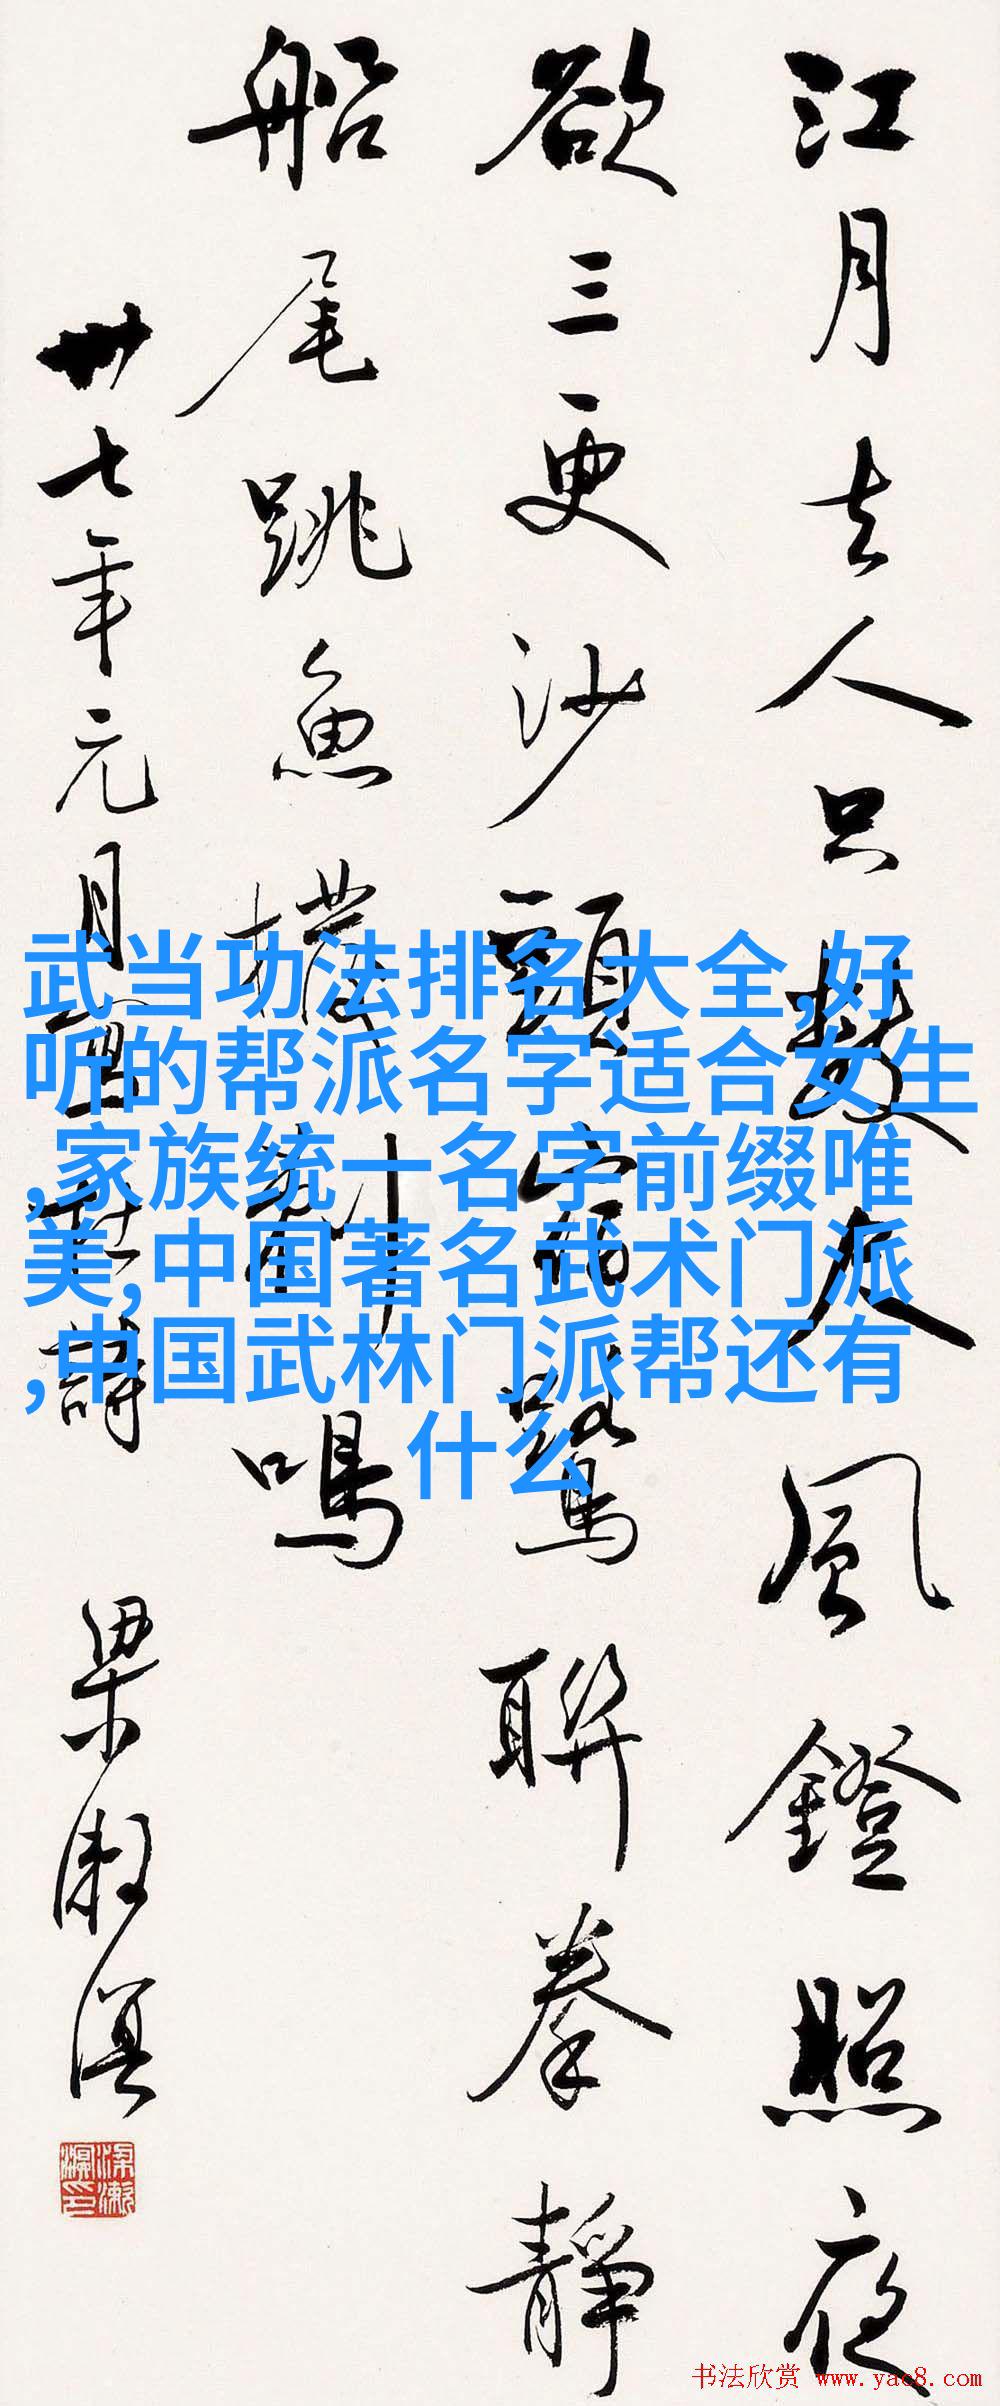 江月去人只數尺風鐙照夜
欲三更沙頭宿鷺聯拳靜
船尾跳魚撥剌鳴
卅七年元月盥杜詩
梁漱溟
武当功法排名大全,好
听的帮派名字适合女生
,家族统一名字前缀唯
美,中国著名武术门派
,中国武林门派帮还有
什么
书法欣赏 www.yac8.com